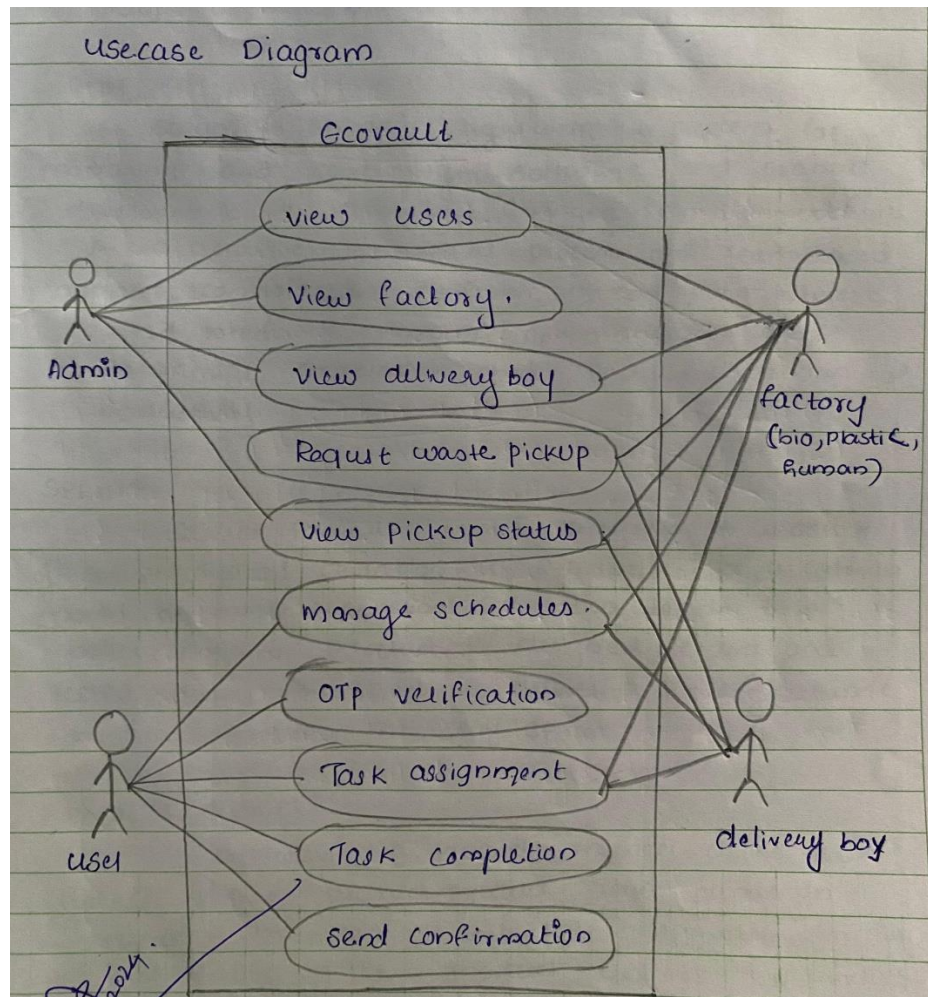 usecase Diagram
Ecovault
view users
View factory.
view delivery boy
Requst waste pickup
View pickup status
manage schedules.
OTP verification
Task assignment
Task completion
send confirmation
Admin
factory
(bio, plastic,
human)
user
delivery boy
2024.